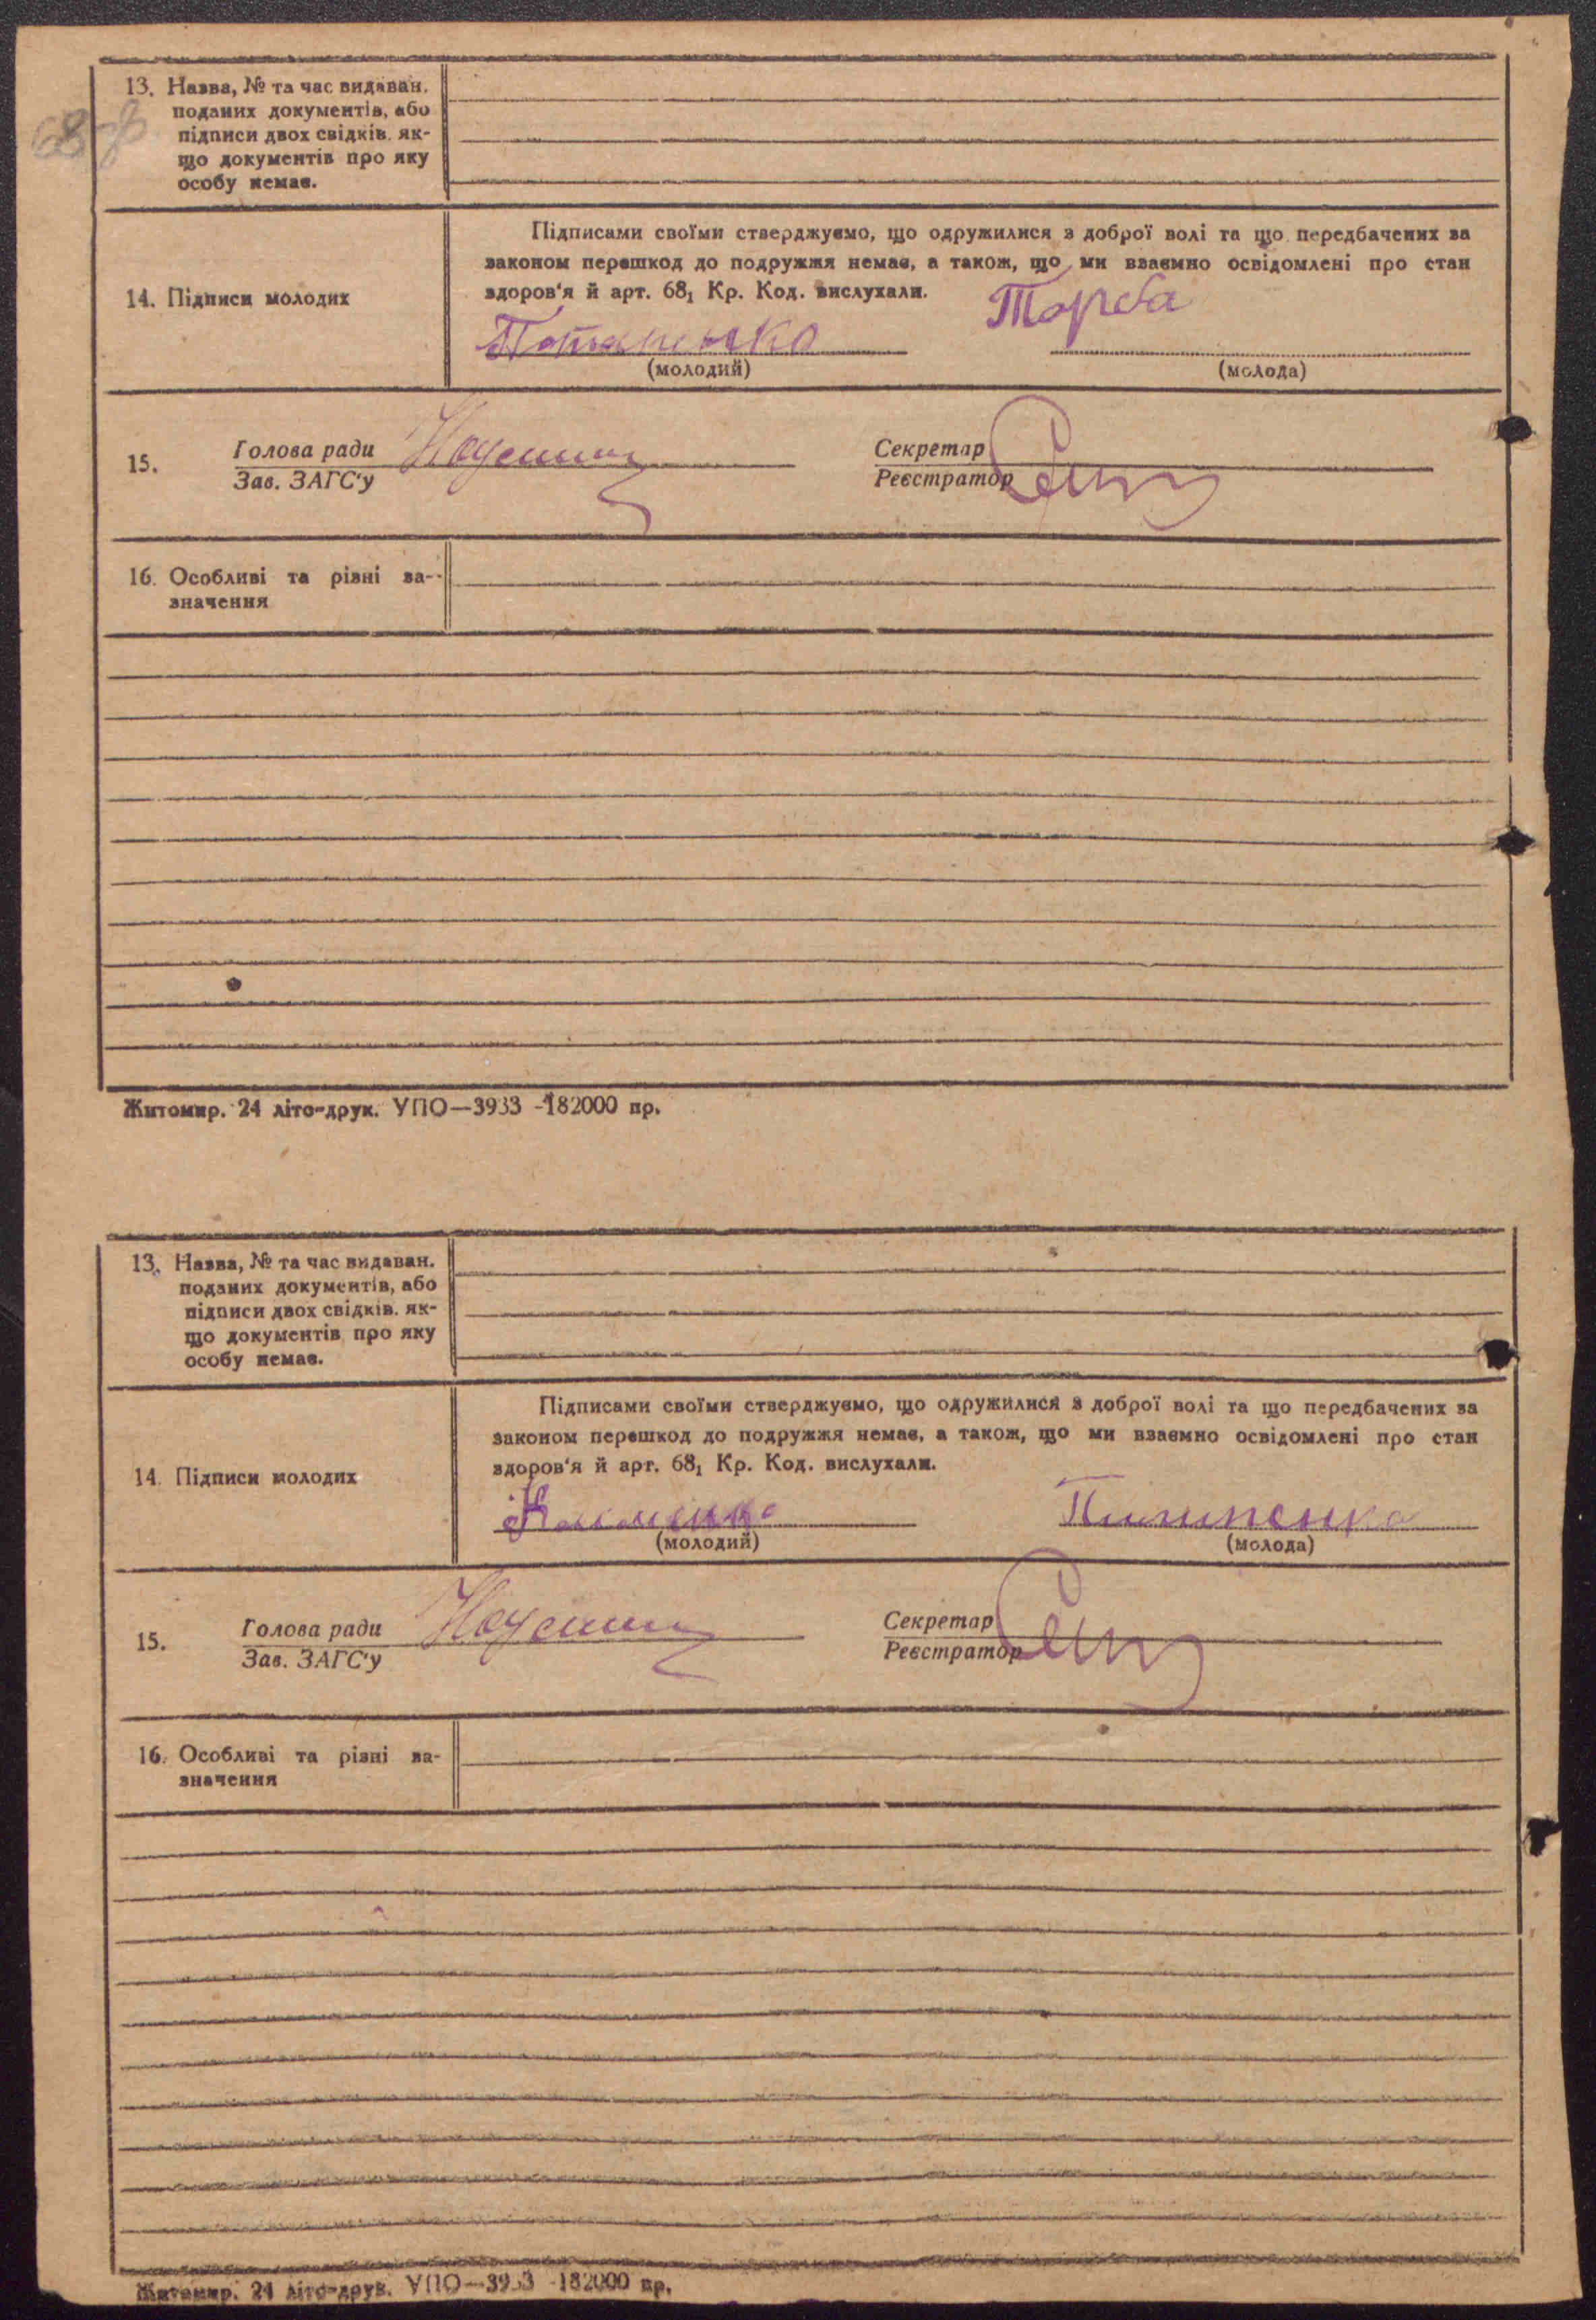 13. Назва, № та час видаван.
поданих документів, або
підписи двох свідків, як-
що документів про яку
особу немає.
14. Підписи молодих
Підписами своїми стверджуємо, що одружилися з доброї волі та що передбачених за
законом перешкод до подружжя немає, а також, що ми взаємно освідомлені про стан
здоров'я й арт. 68₁ Кр. Код. вислухали.
Потапенко Торба
(молодий) (молода)
15. Голова ради Секретар
Зав. ЗАГС'у Реєстратор
16. Особливі та різні за-
значення
Житомир. 24 літо-друк. УПО—3933 -182000 пр.
13. Назва, № та час видаван.
поданих документів, або
підписи двох свідків, як-
що документів про яку
особу немає.
14. Підписи молодих
Підписами своїми стверджуємо, що одружилися з доброї волі та що передбачених за
законом перешкод до подружжя немає, а також, що ми взаємно освідомлені про стан
здоров'я й арт. 68₁ Кр. Код. вислухали.
Пилипенко
(молодий) (молода)
15. Голова ради Секретар
Зав. ЗАГС'у Реєстратор
16. Особливі та різні за-
значення
Житомир. 24 літо-друк. УПО—3933 -182000 пр.